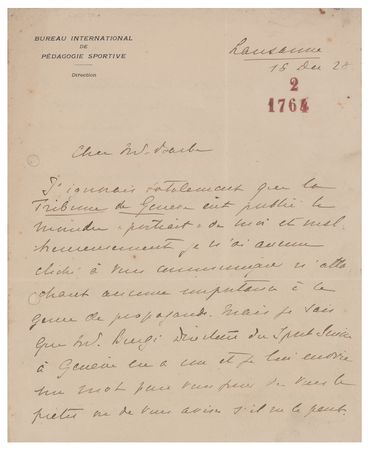 BUREAU INTERNATIONAL
DE
PÉDAGOGIE SPORTIVE
Direction
Lausanne
18 Dec 28
2
1764
Cher M.
J'ignorais totalement que la
Tribune de Genève eut publié le
moindre "portrait" de moi et mal-
heureusement je n'ai aucun
cliché à vous communiquer n'atta
chant aucune importance à ce
genre de propagande. Mais je sais
que M. Directeur du Sport Suisse
à Genève en a un et je lui envoie
un mot pour vous pour de vous le
prêter ou de vous aviser s'il ne le peut.